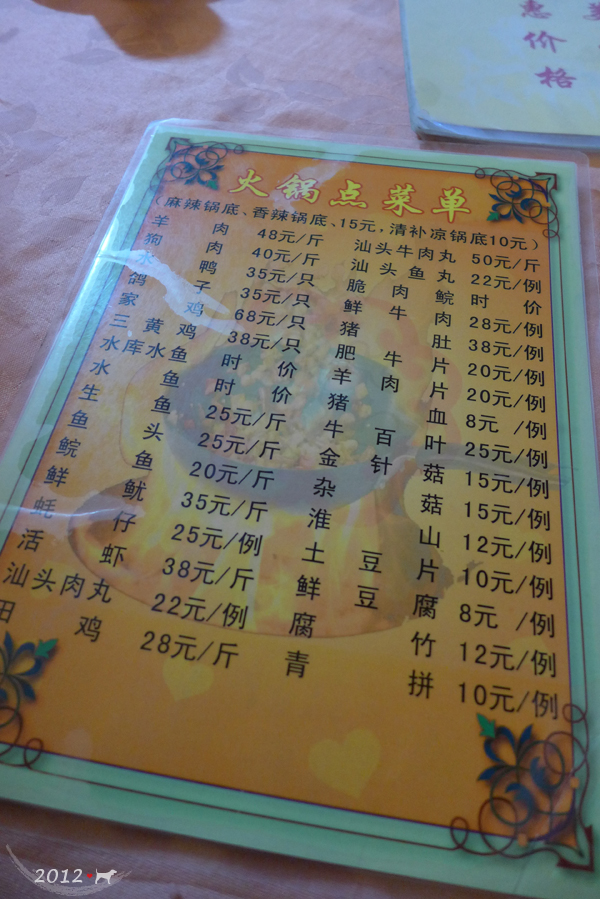 惠
价
格
火锅点菜单
(麻辣锅底、香辣锅底、15元,清补凉锅底10元)
羊肉 48元/斤 汕头牛肉丸 50元/斤
狗肉 40元/斤 汕头鱼丸 22元/例
水鸭 35元/只 脆肉鲩 时价
鸽子 35元/只 鲜牛肉 28元/例
家鸡 68元/只 猪肚 38元/例
三黄鸡 38元/只 肥牛片 20元/例
水库水鱼 时价 羊肉片 20元/例
水鱼 时价 猪血 8元/例
生鱼 25元/斤 牛百叶 25元/例
鱼头 25元/斤 金针菇 15元/例
鲩鱼 20元/斤 杂菇 15元/例
鲜鱿 35元/斤 淮山 12元/例
蚝仔 25元/例 土豆片 10元/例
活虾 38元/斤 鲜豆腐 8元/例
汕头肉丸 22元/例 腐竹 12元/例
田鸡 28元/斤 青拼 10元/例
2012